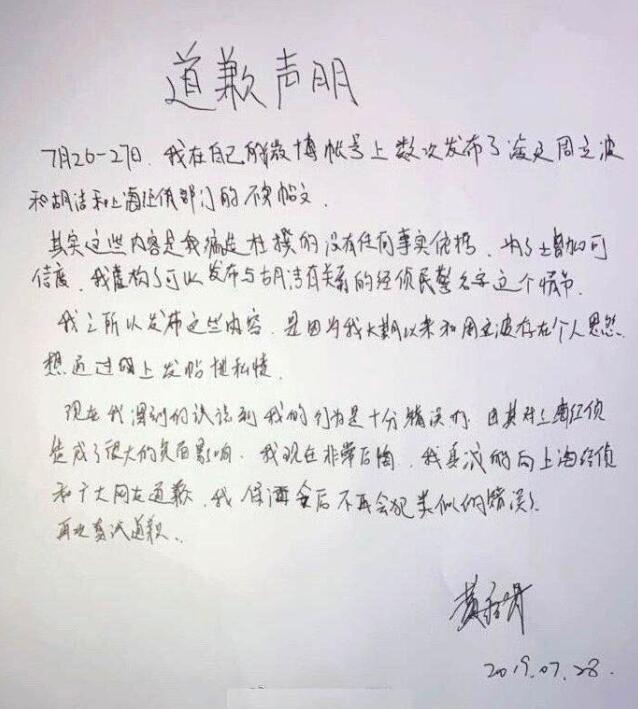 道歉声明
7月26-27日,我在自己的微博帐号上数次发布了涉及周立波
和胡洁和上海经侦部门的不实帖文.
其实这些内容是我编造杜撰的没有任何事实依据.为了增加可
信度.我虚构了可以发布与胡洁有关系的经侦民警名字这个情节.
我之所以发布这些内容.是因为我长期以来和周立波存在个人恩怨.
想通过网上发帖泄私愤.
现在我深刻的认识到我的行为是十分错误的,尤其对上海经侦
造成了很大的负面影响.我现在非常后悔.我真诚的向上海经侦
和广大网友道歉.我保证今后不再会犯类似的错误.
再次真诚道歉.
2019.07.28